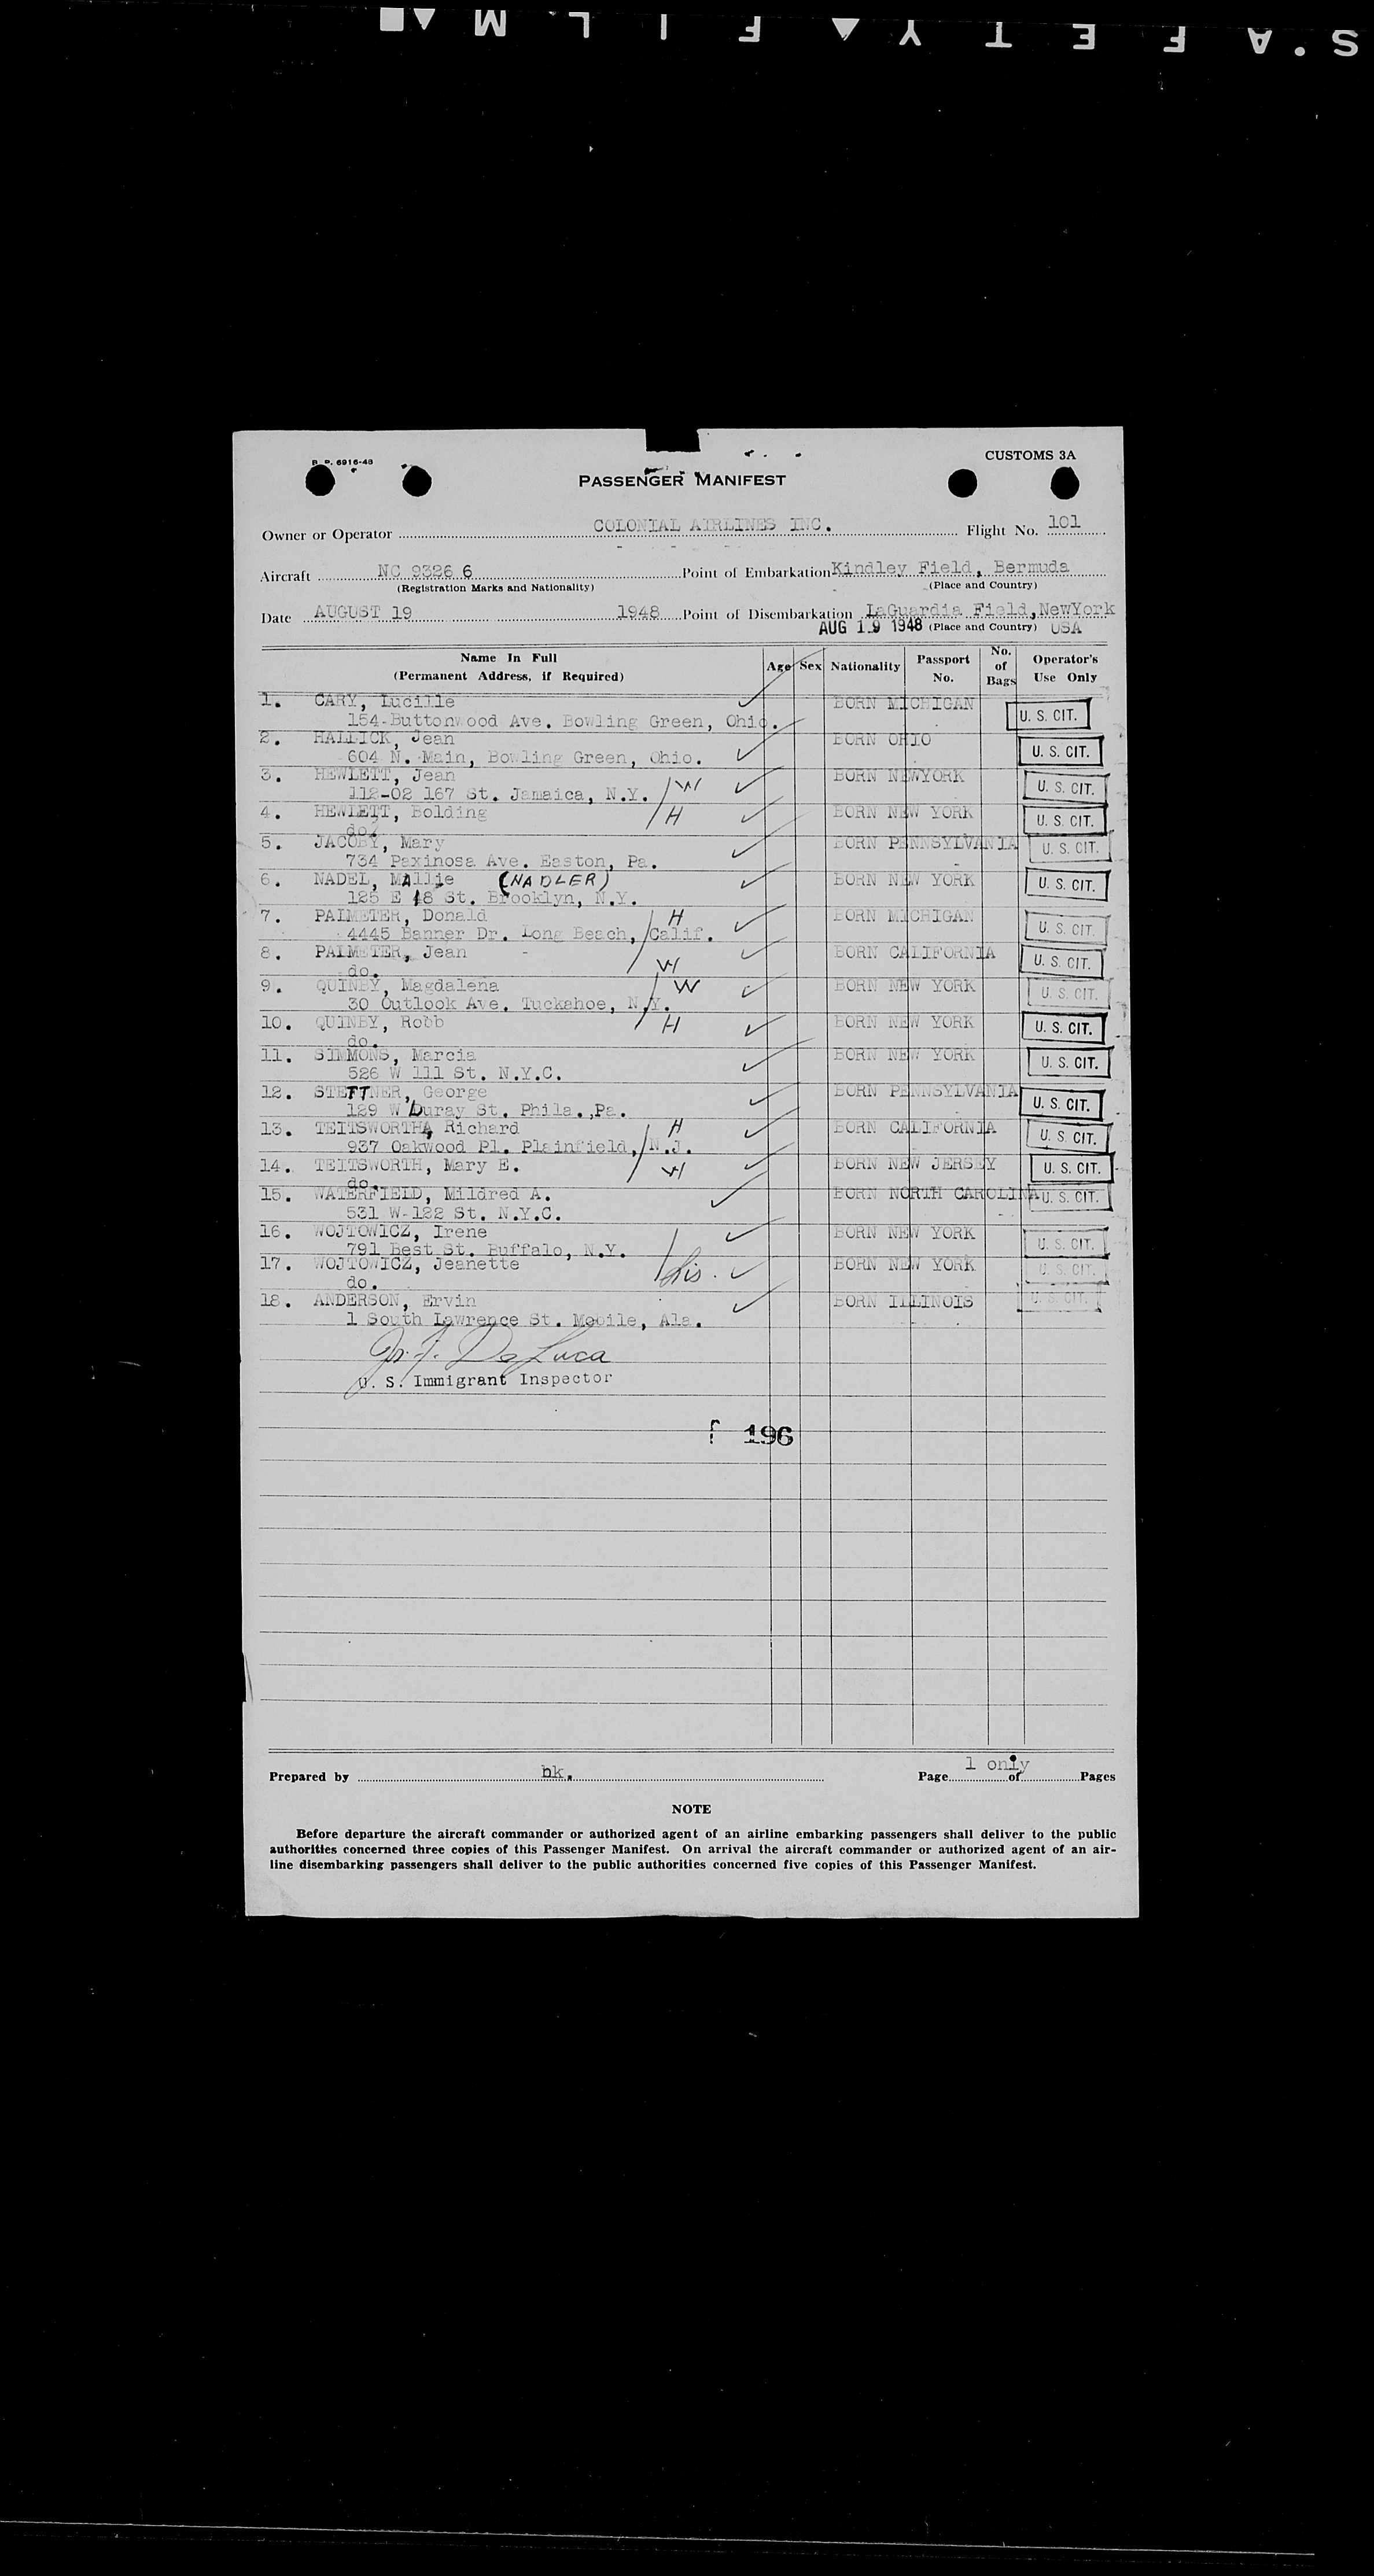 S.AFETY FILM
R. P. 6916-48
CUSTOMS 3A
PASSENGER MANIFEST
Owner or Operator COLONIAL AIRLINES INC. Flight No. 101
Aircraft NC 93266 Point of Embarkation Kindley Field, Bermuda
(Registration Marks and Nationality) (Place and Country)
Date AUGUST 19 1948 Point of Disembarkation LaGuardia Field, NewYork
AUG 19 1948 (Place and Country) USA
Name In Full (Permanent Address, if Required) Age Sex Nationality Passport No. No. of Bags Operator's Use Only
1. CARY, Lucille BORN MICHIGAN U. S. CIT.
154 Buttonwood Ave. Bowling Green, Ohio.
2. HALLICK, Jean BORN OHIO U. S. CIT.
604 N. Main, Bowling Green, Ohio.
3. HEWLETT, Jean W BORN NEWYORK U. S. CIT.
112-02 167 St. Jamaica, N.Y.
4. HEWLETT, Bolding H BORN NEW YORK U. S. CIT.
do.
5. JACOBY, Mary BORN PENNSYLVANIA U. S. CIT.
734 Paxinosa Ave. Easton, Pa.
6. NADEL, Mallie (NADLER) BORN NEW YORK U. S. CIT.
125 E 48 St. Brooklyn, N.Y.
7. PALMETER, Donald H BORN MICHIGAN U. S. CIT.
4445 Banner Dr. Long Beach, Calif.
8. PALMETER, Jean W BORN CALIFORNIA U. S. CIT.
do.
9. QUINBY, Magdalena W BORN NEW YORK U. S. CIT.
30 Outlook Ave. Tuckahoe, N.Y.
10. QUINBY, Robb H BORN NEW YORK U. S. CIT.
do.
11. SIMMONS, Marcia BORN NEW YORK U. S. CIT.
526 W 111 St. N.Y.C.
12. STETTNER, George BORN PENNSYLVANIA U. S. CIT.
129 W Duray St. Phila.,Pa.
13. TEITSWORTH, Richard H BORN CALIFORNIA U. S. CIT.
937 Oakwood Pl. Plainfield, N.J.
14. TEITSWORTH, Mary E. W BORN NEW JERSEY U. S. CIT.
do.
15. WATERFIELD, Mildred A. BORN NORTH CAROLINA U. S. CIT.
531 W-122 St. N.Y.C.
16. WOJTOWICZ, Irene BORN NEW YORK U. S. CIT.
791 Best St. Buffalo, N.Y.
17. WOJTOWICZ, Jeanette Sis. BORN NEW YORK U. S. CIT.
do.
18. ANDERSON, Ervin BORN ILLINOIS U. S. CIT.
1 South Lawrence St. Mobile, Ala.
De Luca
U. S. Immigrant Inspector
196
Prepared by bk. Page 1 only of Pages
NOTE
Before departure the aircraft commander or authorized agent of an airline embarking passengers shall deliver to the public
authorities concerned three copies of this Passenger Manifest. On arrival the aircraft commander or authorized agent of an air-
line disembarking passengers shall deliver to the public authorities concerned five copies of this Passenger Manifest.